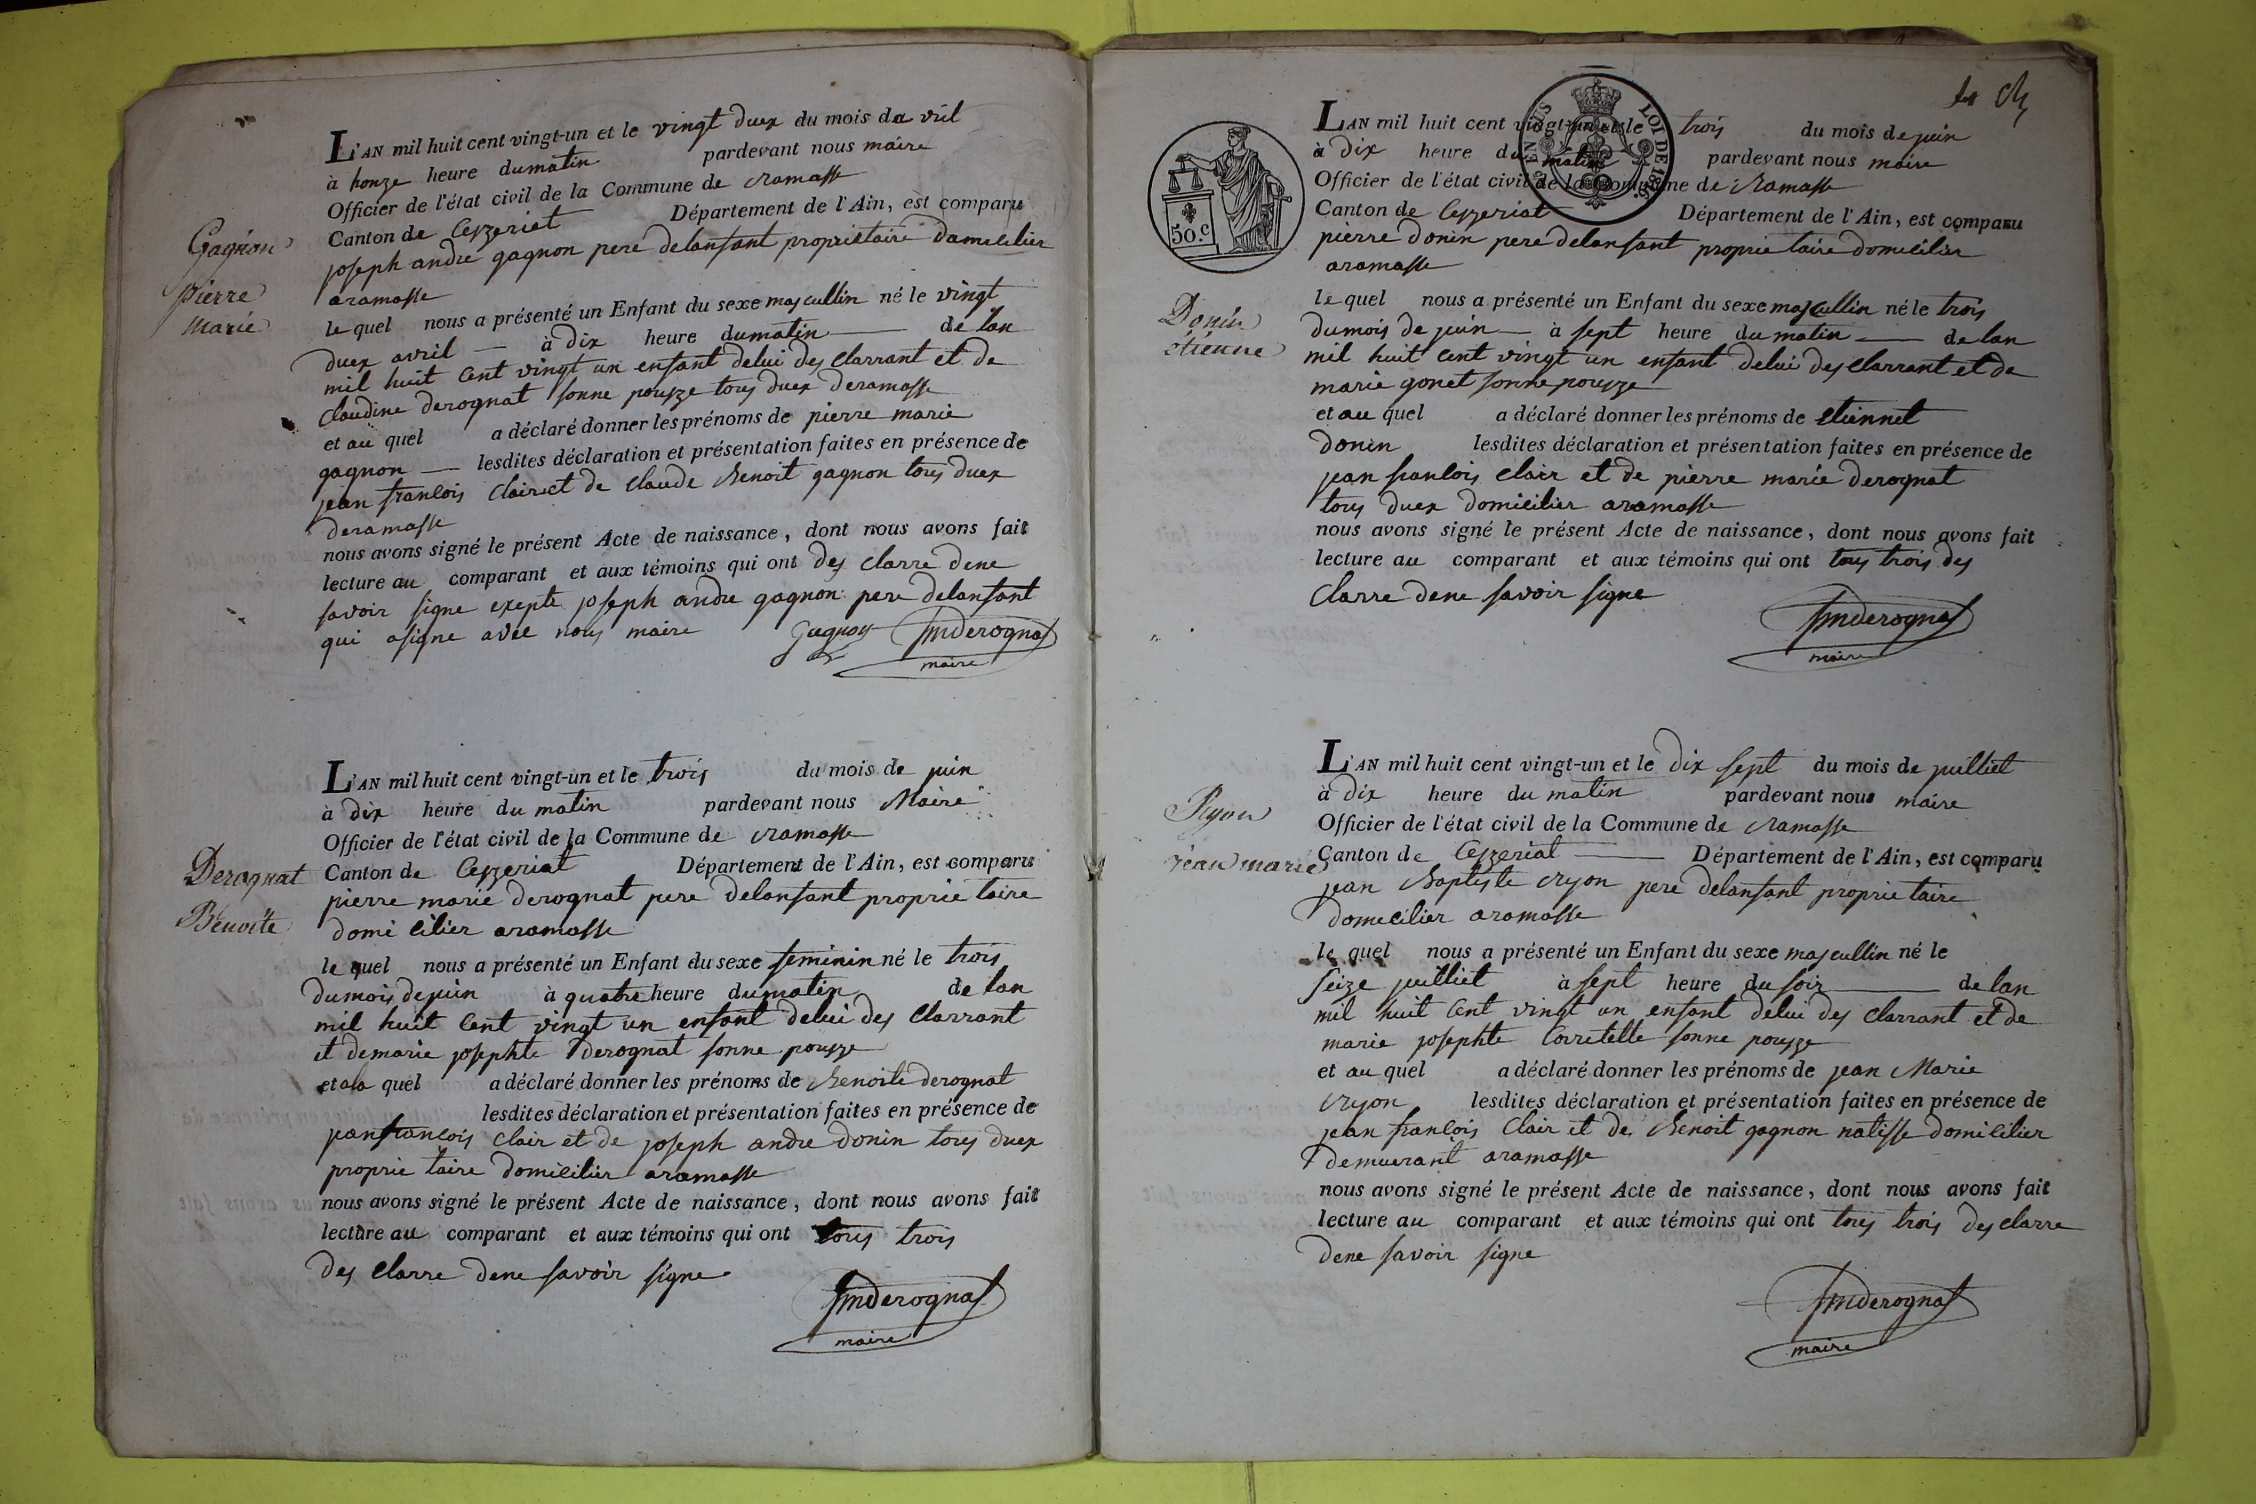 Gagnon
pierre
marie
L'AN mil huit cent vingt-un et le vingt duex du mois da vril
à honze heure dumatin pardevant nous maire
Officier de l'état civil de la Commune de ramasse
Canton de Ceyzeriat Département de l'Ain, est comparu
joseph andre gagnon pere delansant proprietaire domicilier
aramasse
le quel nous a présenté un Enfant du sexe mascullin né le vingt
duex avril à dix heure dumatin de lan
mil huit cent vingt un ensant delui des clarrant et de
claudine derognat sonne pousze tous duex deramasse
et au quel a déclaré donner les prénoms de pierre marie
gagnon lesdites déclaration et présentation faites en présence de
jean francois clair et de claude Benoit gagnon tous duex
deramasse
nous avons signé le présent Acte de naissance, dont nous avons fait
lecture au comparant et aux témoins qui ont des clarre dene
savoir signe exepte joseph andre gagnon pere delansant
qui asigne avec nous maire Gagnon pmderognat
maire
Derognat
Benoite
L'AN mil huit cent vingt-un et le trois du mois de juin
à dix heure du matin pardevant nous Maire
Officier de l'état civil de la Commune de ramasse
Canton de Ceyzeriat Département de l'Ain, est comparu
pierre marie derognat pere delansant proprie taire
domi cilier aramasse
le quel nous a présenté un Enfant du sexe seminin né le trois
dumois dejuin à quatre heure dumatin de lan
mil huit cent vingt un ensant delui des clarrant
et demarie josephte derognat sonne pousze
et ala quel a déclaré donner les prénoms de Benoite derognat
lesdites déclaration et présentation faites en présence de
jean francois clair et de joseph andre donin tous duex
proprie taire domicilier aramasse
nous avons signé le présent Acte de naissance, dont nous avons fait
lecture au comparant et aux témoins qui ont tous trois
des clarre dene savoir signe
pmderognat
maire
50.c
EN SUS LOI DE 1816.
L'AN mil huit cent vingt-un et le trois du mois de juin
à dix heure du matin pardevant nous maire
Officier de l'état civil de la Commune de ramasse
Canton de Ceyzeriat Département de l'Ain, est comparu
pierre donin pere delansant proprie taire domicilier
aramasse
Donin
etienne
le quel nous a présenté un Enfant du sexe mascullin né le trois
dumois de juin à sept heure du matin de lan
mil huit cent vingt un ensant delui des clarrant et de
marie gonet sonne pousze
et au quel a déclaré donner les prénoms de etiennet
donin lesdites déclaration et présentation faites en présence de
jean francois clair et de pierre marie derognat
tous duex domicilier aramasse
nous avons signé le présent Acte de naissance, dont nous avons fait
lecture au comparant et aux témoins qui ont tous trois des
clarre dene savoir signe
pmderognat
maire
Ryon
jean marie
L'AN mil huit cent vingt-un et le dix sept du mois de juilliet
à dix heure du matin pardevant nous maire
Officier de l'état civil de la Commune de ramasse
Canton de Ceyzeriat Département de l'Ain, est comparu
jean Baptiste ryon pere delansant proprie taire
domecilier aramasse
le quel nous a présenté un Enfant du sexe mascullin né le
seize juilliet à sept heure du soir de lan
mil huit cent vingt un ensant delui des clarrant et de
marie josephte Corretelle sonne pousze
et au quel a déclaré donner les prénoms de jean Marie
ryon lesdites déclaration et présentation faites en présence de
jean francois clair et de Benoit gagnon natisse domicilier
demuerant aramasse
nous avons signé le présent Acte de naissance, dont nous avons fait
lecture au comparant et aux témoins qui ont tous trois des clarre
dene savoir signe
pmderognat
maire